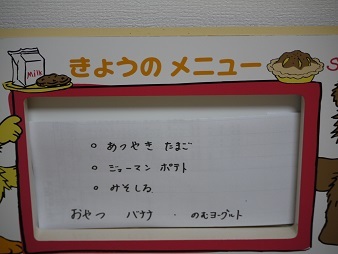 Milk
きょうの メニュー
S
○ あつやき たまご
○ ジャーマン ポテト
○ みそしる
おやつ バナナ ・ のむヨーグルト